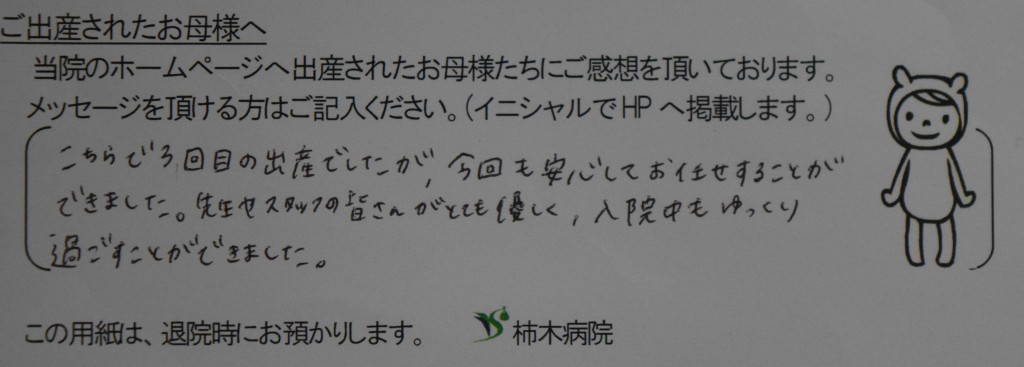 ご出産されたお母様へ
当院のホームページへ出産されたお母様たちにご感想を頂いております。
メッセージを頂ける方はご記入ください。（イニシャルでHPへ掲載します。）
こちらで3回目の出産でしたが、今回も安心してお任せすることが
できました。先生やスタッフの皆さんがとても優しく、入院中もゆっくり
過ごすことができました。
この用紙は、退院時にお預かりします。 柿木病院